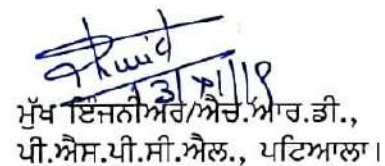 ਮੁੱਖ ਇੰਜਨੀਅਰ/ਐਚ.ਆਰ.ਡੀ.,
ਪੀ.ਐਸ.ਪੀ.ਸੀ.ਐਲ., ਪਟਿਆਲਾ।